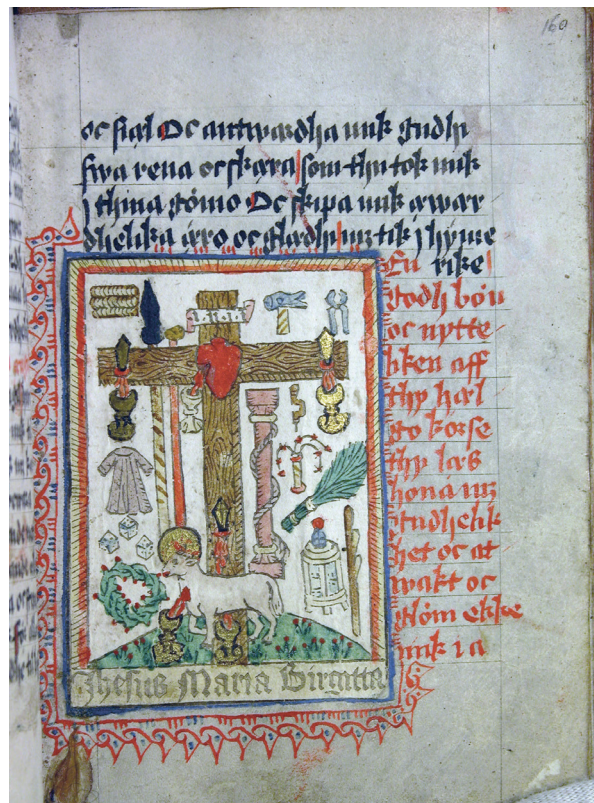 160
oc siæl Oc antwardha mik gudhi
swa rena oc skæra som thu tok mik
j thina gömo Oc skipa mik æwær
dhelika äro oc glædhi mz tik j hyme
rike
En
godh bön
oc nytte
liken aff
thy hæl
go korse
thy læs
hona mz
gudhelik
het oc at
wakt oc
glöm ekke
mik ia
Jhesus Maria Birgitta